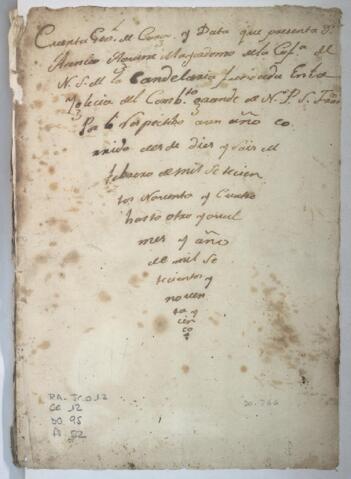 Cuenta Gral. de Cargo, y Data que presenta Dn.
Aguirre Mayordomo de la Cofa. de
N. S. de la Candelaria fundada En la
Yglecia del Combto. grande de N. P. S. Fran
Por lo Respectibo a un año co
rrido desde dies y seis de
febrero de mil Setecien
tos Noventa y Cuatro
hasta otro ygual
mes y año
de mil Se
tecientos y
noven
ta y
cin
co
RA. Jr. 0.12
CA 12
DO 95
A 52
DO. 266